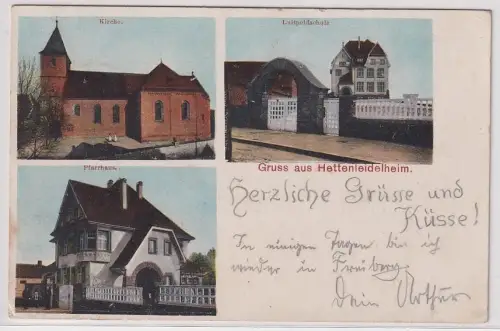 Kirche.
Luitpoldschule
Pfarrhaus.
Gruss aus Hettenleidelheim.
Herzliche Grüsse und
Küsse!
In einigen Tagen bin ich
wieder in Freiberg.
Dein Arthur